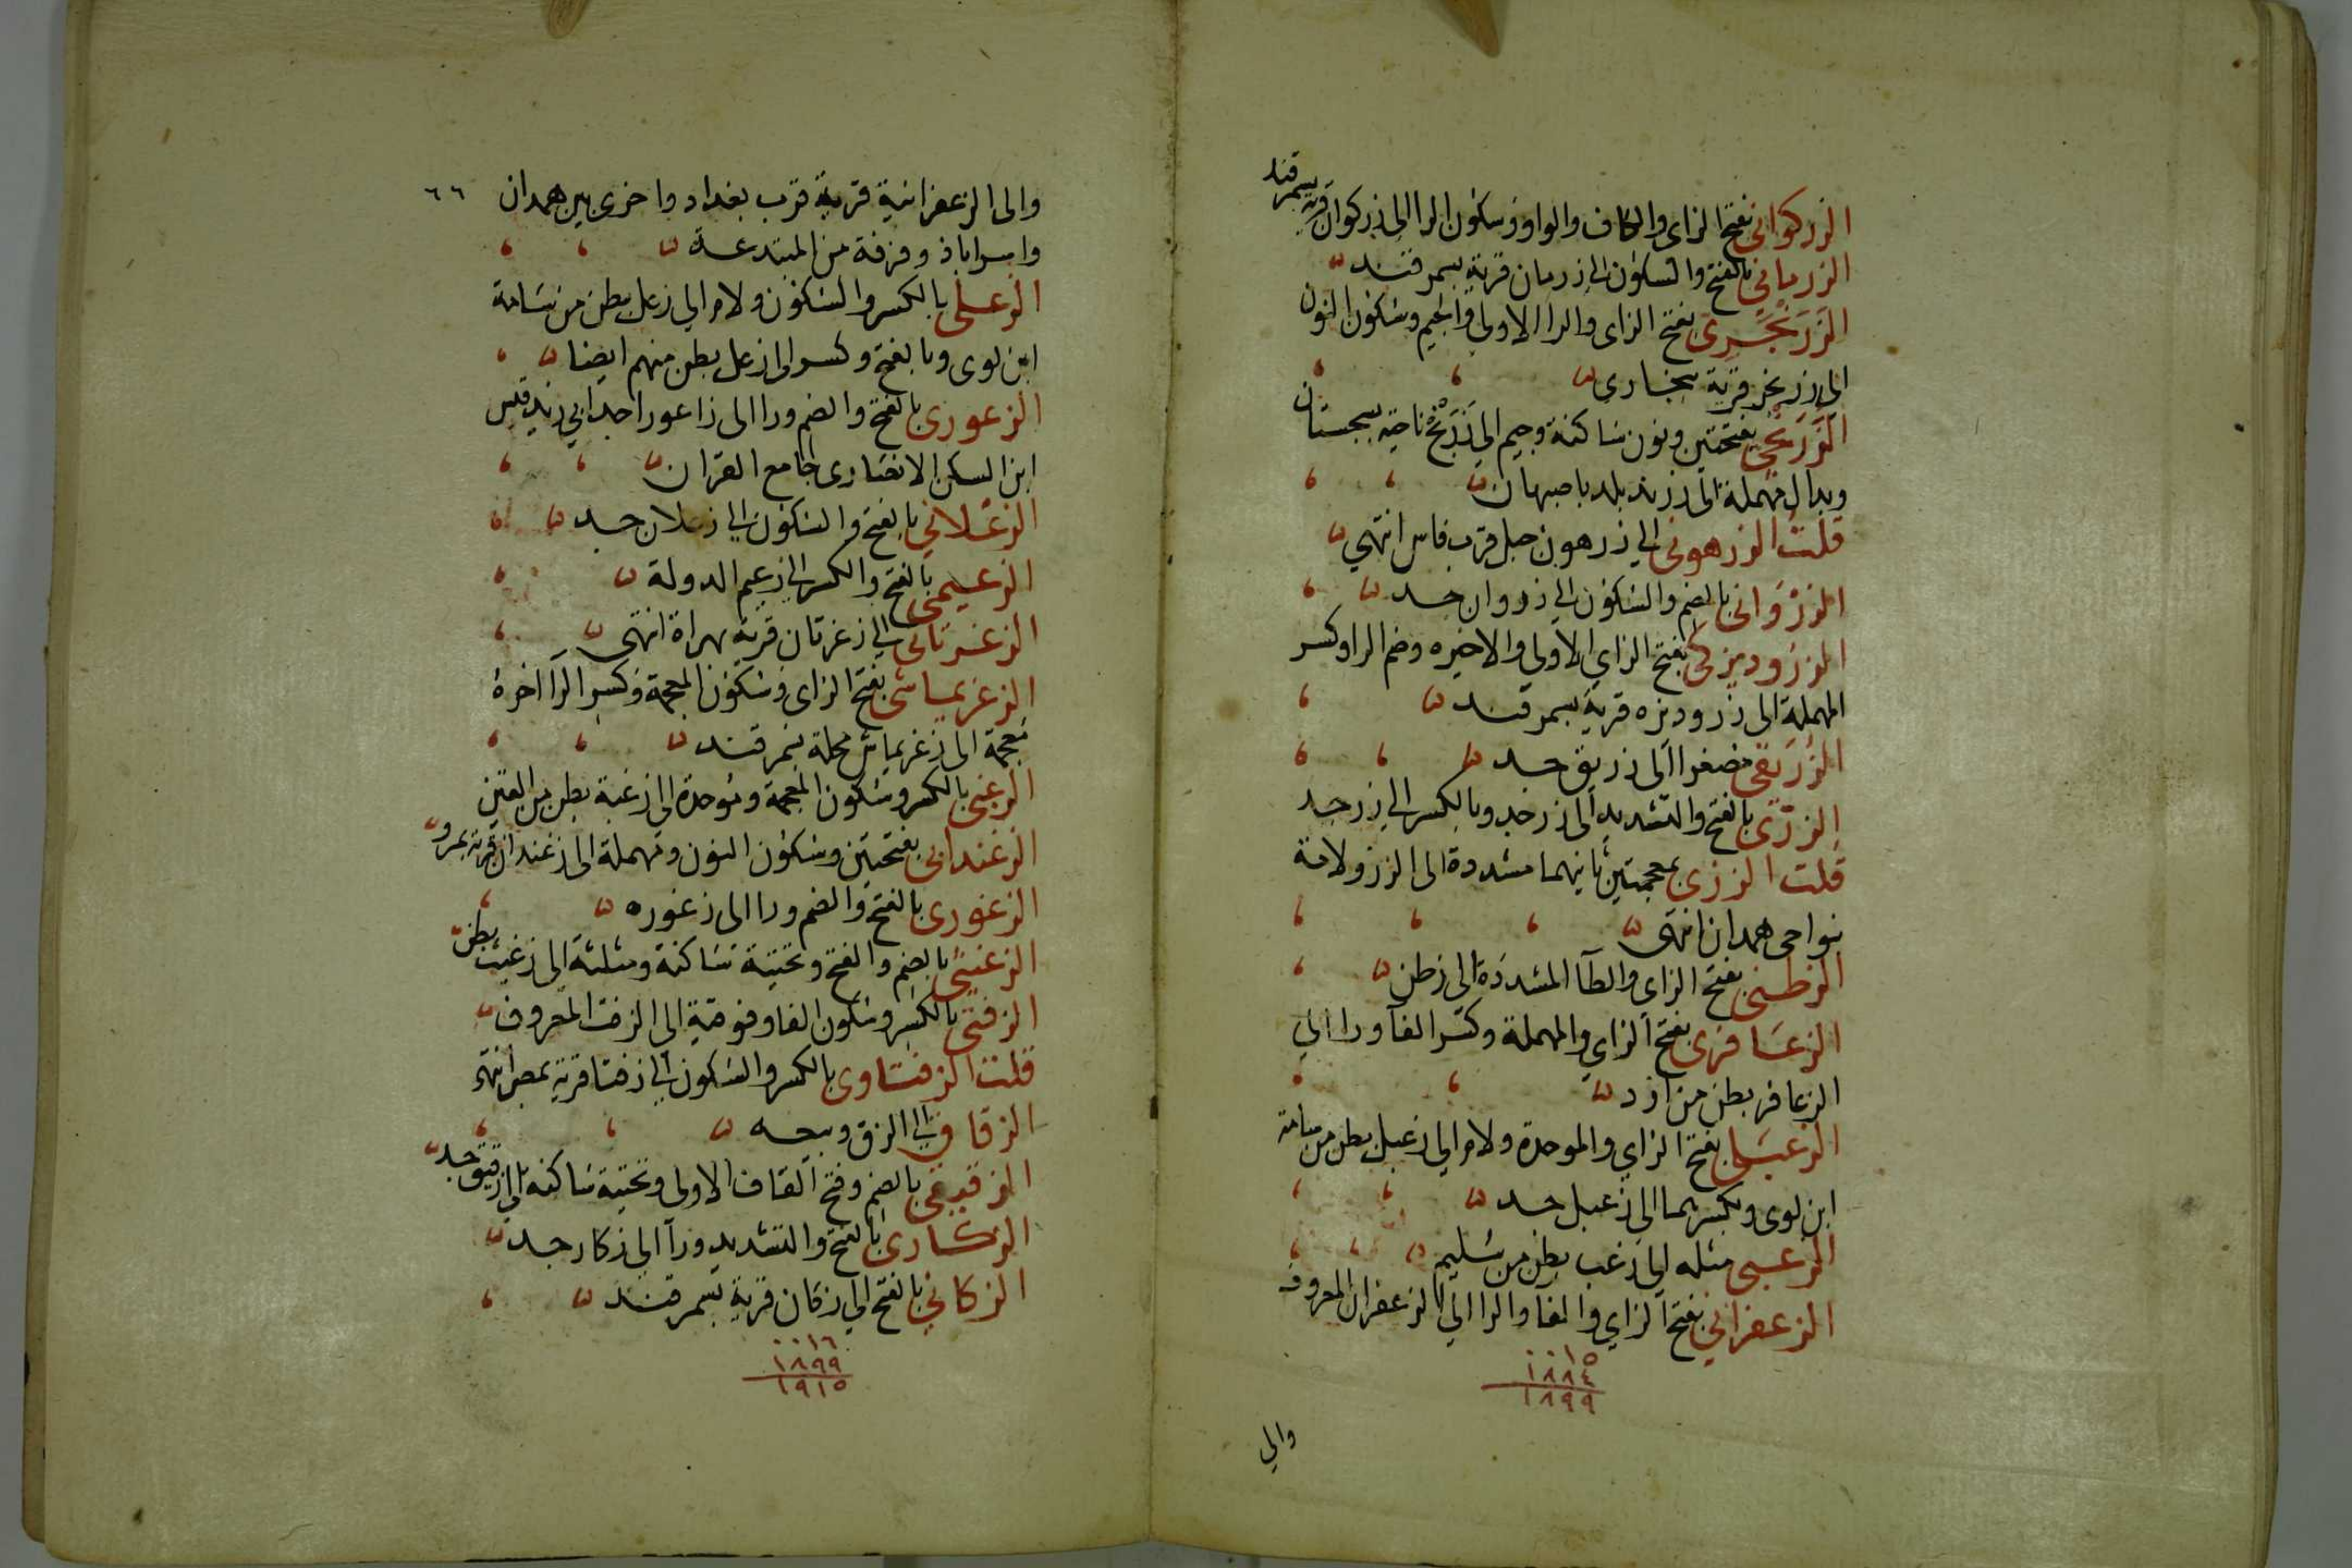 الزركوانى بفتح الزاى والكاف والواو وسكون الرا الى زركوان قرية بسمرقند
الزرمانى بالفتح والسكون الى زرمان قرية بسمرقند
الزرنجرى بفتح الزاى والرا الاولى والجيم وسكون النون
الى زرنجر قرية ببخارى
الزرنجى بفتحتين ونون ساكنة وجيم الى زرنج ناحية بسجستان
وبدال مهملة الى زرند بلد باصبهان
قلت الزرهونى الى زرهون جبل قرب فاس انتهى
الزروانى بالضم والسكون الى زروان جد
الزروديزكى بفتح الزاي الاولى والاخيره وضم الرا وكسر
المهملة الى زروديزه قرية بسمرقند
الزريقى مصغرا الى زريق جد
الزرى بالفتح والتشديد الى زر جد وبالكسر الى زر جد
قلت الززى بمعجمتين ثانيهما مشددة الى الزز ولاية
بنواحى همدان انتهى
الزطنى بفتح الزاى والطآ المشددة الى زطن
الزعافرى بفتح الزاي والمهملة وكسر الفآ ورا الى
الزعافر بطن من ازد
الزعبلى بفتح الزاي والموحدة ولام الى زعبل بطن من سامة
ابن لوى وبكسرهما الى زعبل جد
الزعبى مثله الى زعب بطن من سليم
الزعفرانى بفتح الزاي والفآ والرا الى الزعفران المعروف
٠٠١٥
١٨٨٤
١٨٩٩
والى
٦٦
والى الزعفرانية قرية قرب بغداد واخرى بين همدان
واسراباذ وفرقة من المبتدعة
الزعلى بالكسر والسكون ولام الى زعل بطن من سامة
ابن لوى وبالفتح وكسر الى زعل بطن منهم ايضا
الزعورى بالفتح والضم ورا الى زاعورا جد ابي زيد قيس
ابن السكن الانصارى جامع القران
الزعلانى بالفتح والسكون الى زعلان جد
الزعيمى بالفتح والكسر الى زعيم الدولة
الزغرتانى الى زغرتان قرية بهراة انتهى
الزغريماشى بفتح الزاى وسكون المعجمة وكسر الرآ اخره
معجمة الى زغريماش محلة بسمرقند
الزغبى بالكسر وسكون المعجمة وموحدة الى زغبة بطن من القين
الزغندانى بفتحتين وسكون النون ومهملة الى زغندان قرية بمرو
الزغورى بالفتح والضم ورا الى زغوره
الزغيثى بالضم والفتح وتحتية ساكنة ومثلثة الى زغيث بطن
الزفتى بالكسر وسكون الفا وفوقية الى الزفت المعروف
قلت الزفتاوى بالكسر والسكون الى زفتا قرية بمصر انتهى
الزقاق الى الزق وبيعه
الزقيقى بالضم وفتح القاف الاولى وتحتية ساكنة الى زقيق جد
الزكارى بالفتح والتشديد ورآ الى زكار جد
الزكانى بالفتح الى زكان قرية بسمرقند
٠٠١٦
١٨٩٩
١٩١٥